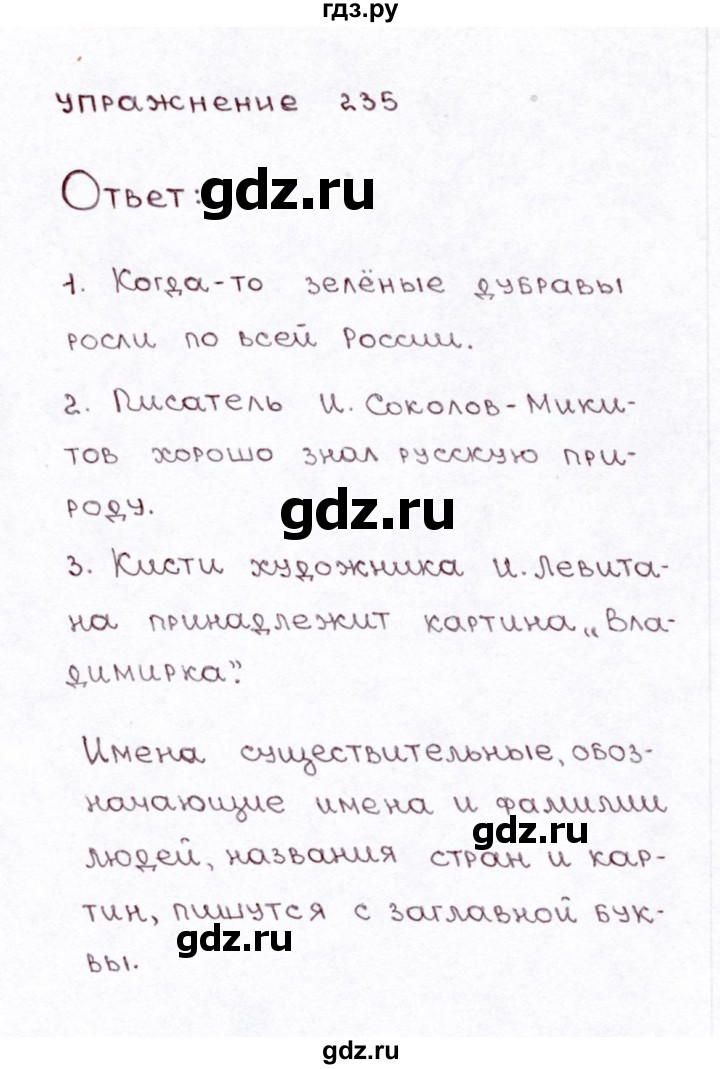 гдз.ру
упражнение 235
Ответ: gdz.ru
1. Когда-то зелёные дубравы
росли по всей России.
2. Писатель И. Соколов-Мики-
тов хорошо знал русскую при-
роду.
gdz.ru
3. Кисти художника И. Левита-
на принадлежит картина „Вла-
димирка".
Имена существительные, обоз-
начающие имена и фамилии
gdz.ru
людей, названия стран и кар-
тин, пишутся с заглавной бук-
gdz.ru
вы.
gdz.ru